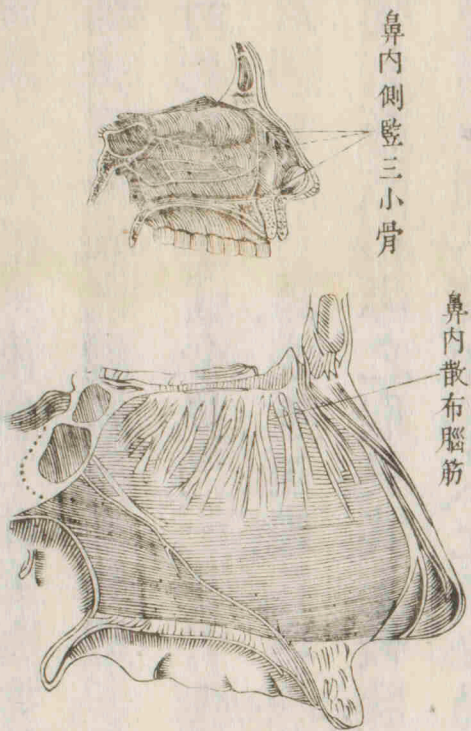 鼻內側監三小骨
鼻內散布腦筋